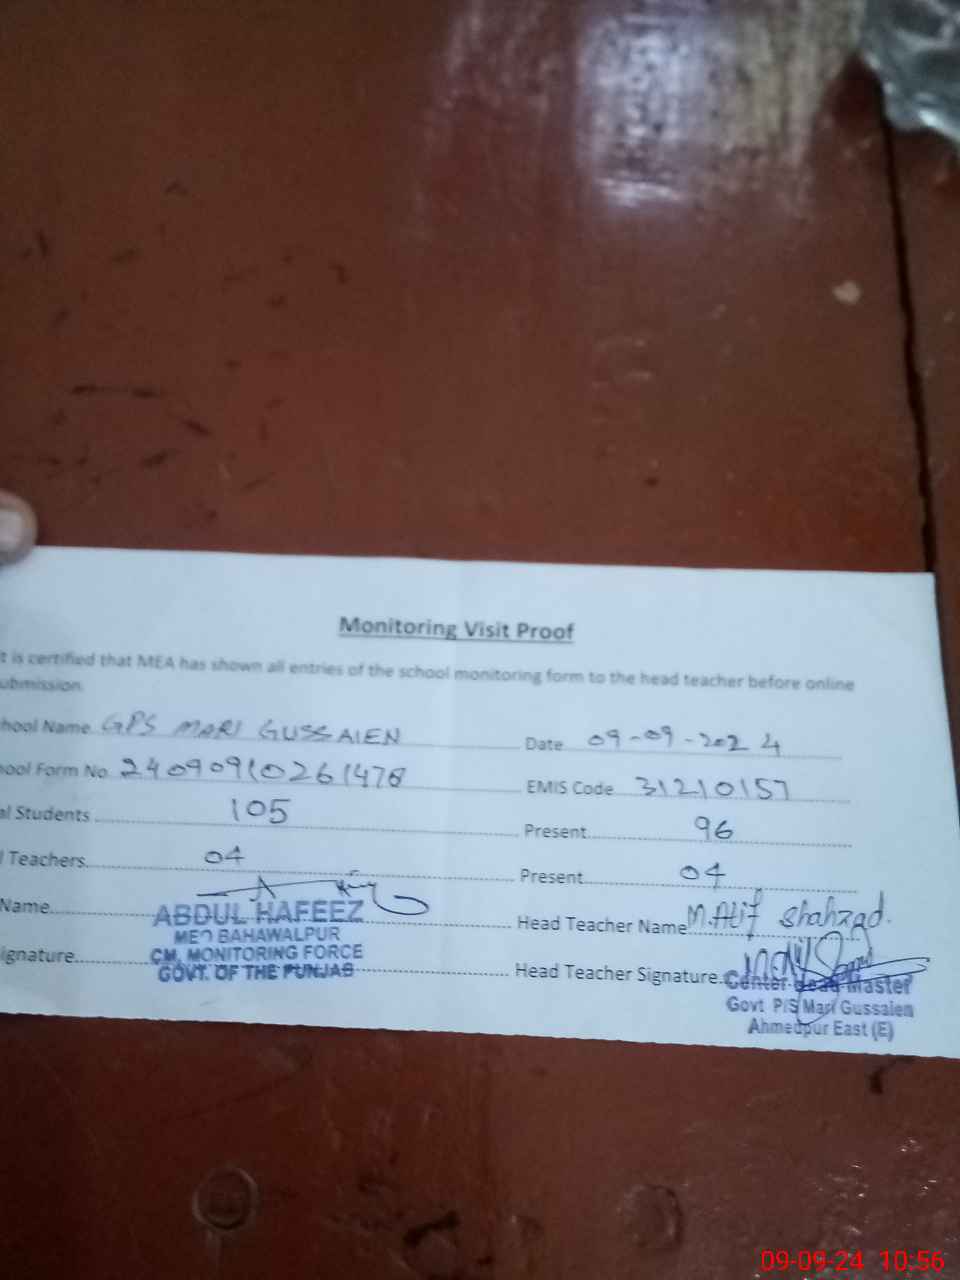 Monitoring Visit Proof
t is certified that MEA has shown all entries of the school monitoring form to the head teacher before online
ubmission
hool Name GPS MARI GUSSAIEN Date 09-09-2024
ool Form No. 24090910261478 EMIS Code 31210157
al Students 105 Present 96
l Teachers 04 Present 04
Name ABDUL HAFEEZ Head Teacher Name M. Atif Shahzad.
MEO BAHAWALPUR
ignature CM, MONITORING FORCE Head Teacher Signature
GOVT. OF THE PUNJAB
Center Head Master
Govt P/S Mari Gussaien
Ahmedpur East (E)
09-09-24 10:56